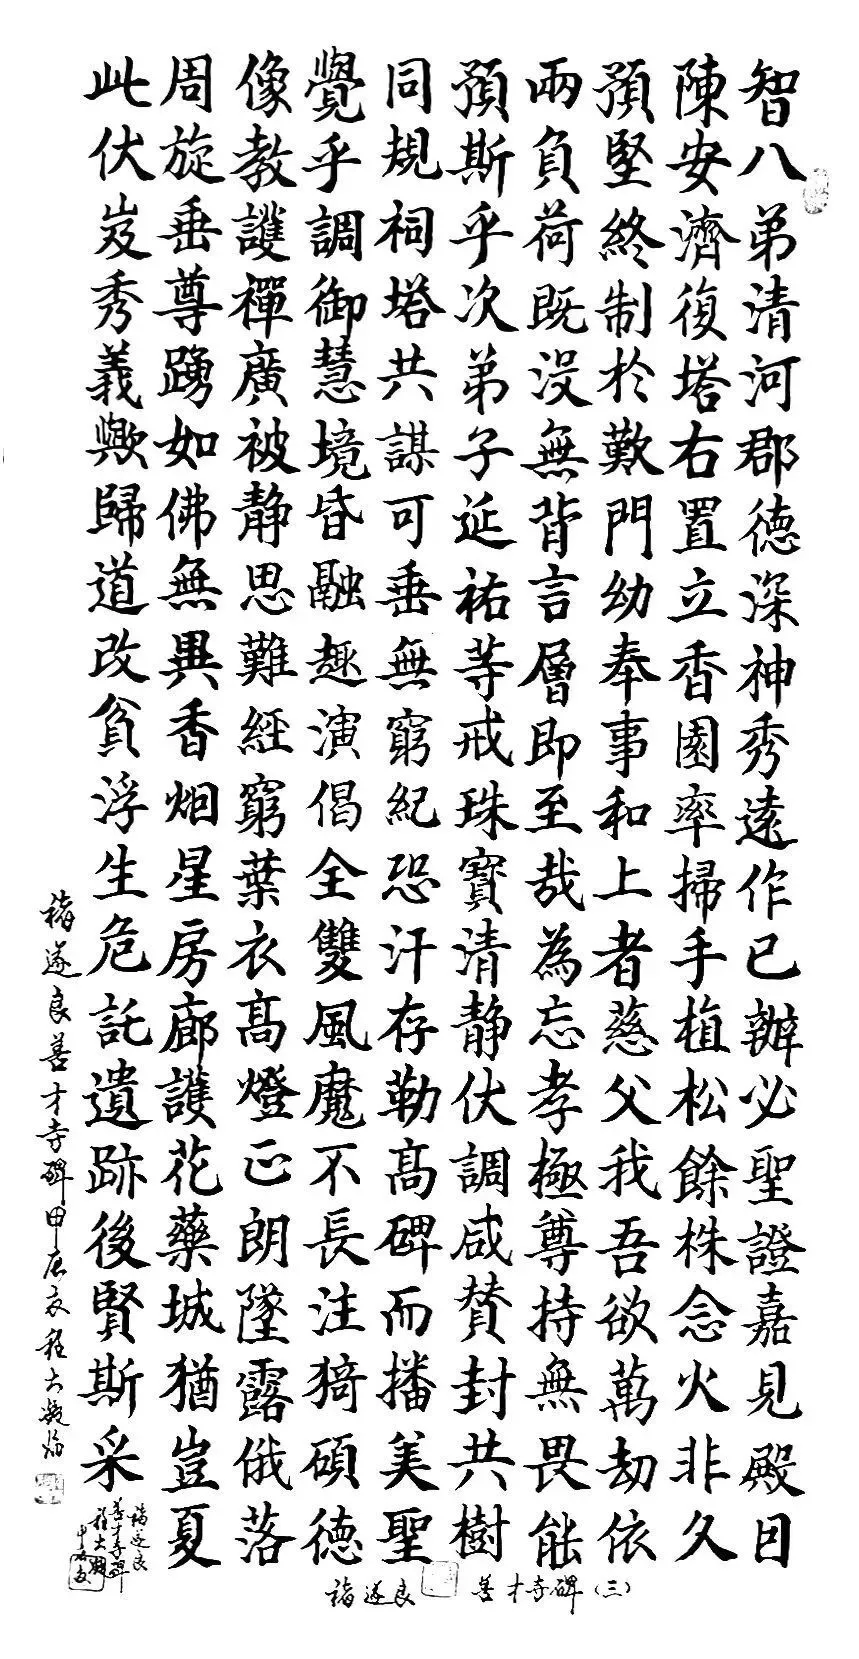 智八弟清河郡德深神秀遠作已辦必聖證嘉見殿目
陳安濟復塔右置立香園率掃手植松餘株念火非久
預堅終制於歎門幼奉事和上者慈父我吾欲萬劫依
兩負荷既没無背言層即至哉為忘孝極尊持無畏能
預斯乎次弟子延祐等戒珠寶清静伏調咸賛封共樹
同規祠塔共謀可垂無窮紀恐汗存勒高碑而播美聖
覺乎調御慧境昏融趣演偈全雙風魔不長注猗碩德
像教護禪廣被静思難經窮葉衣高燈正朗墜露俄落
周旋垂尊踴如佛無異香烟星房廊護花藥城猶豈夏
此伏岌秀義歟歸道改貧浮生危託遺跡後賢斯采
褚遂良善才寺碑甲辰
褚遂良
善才寺碑
褚遂良 善才寺碑(三)